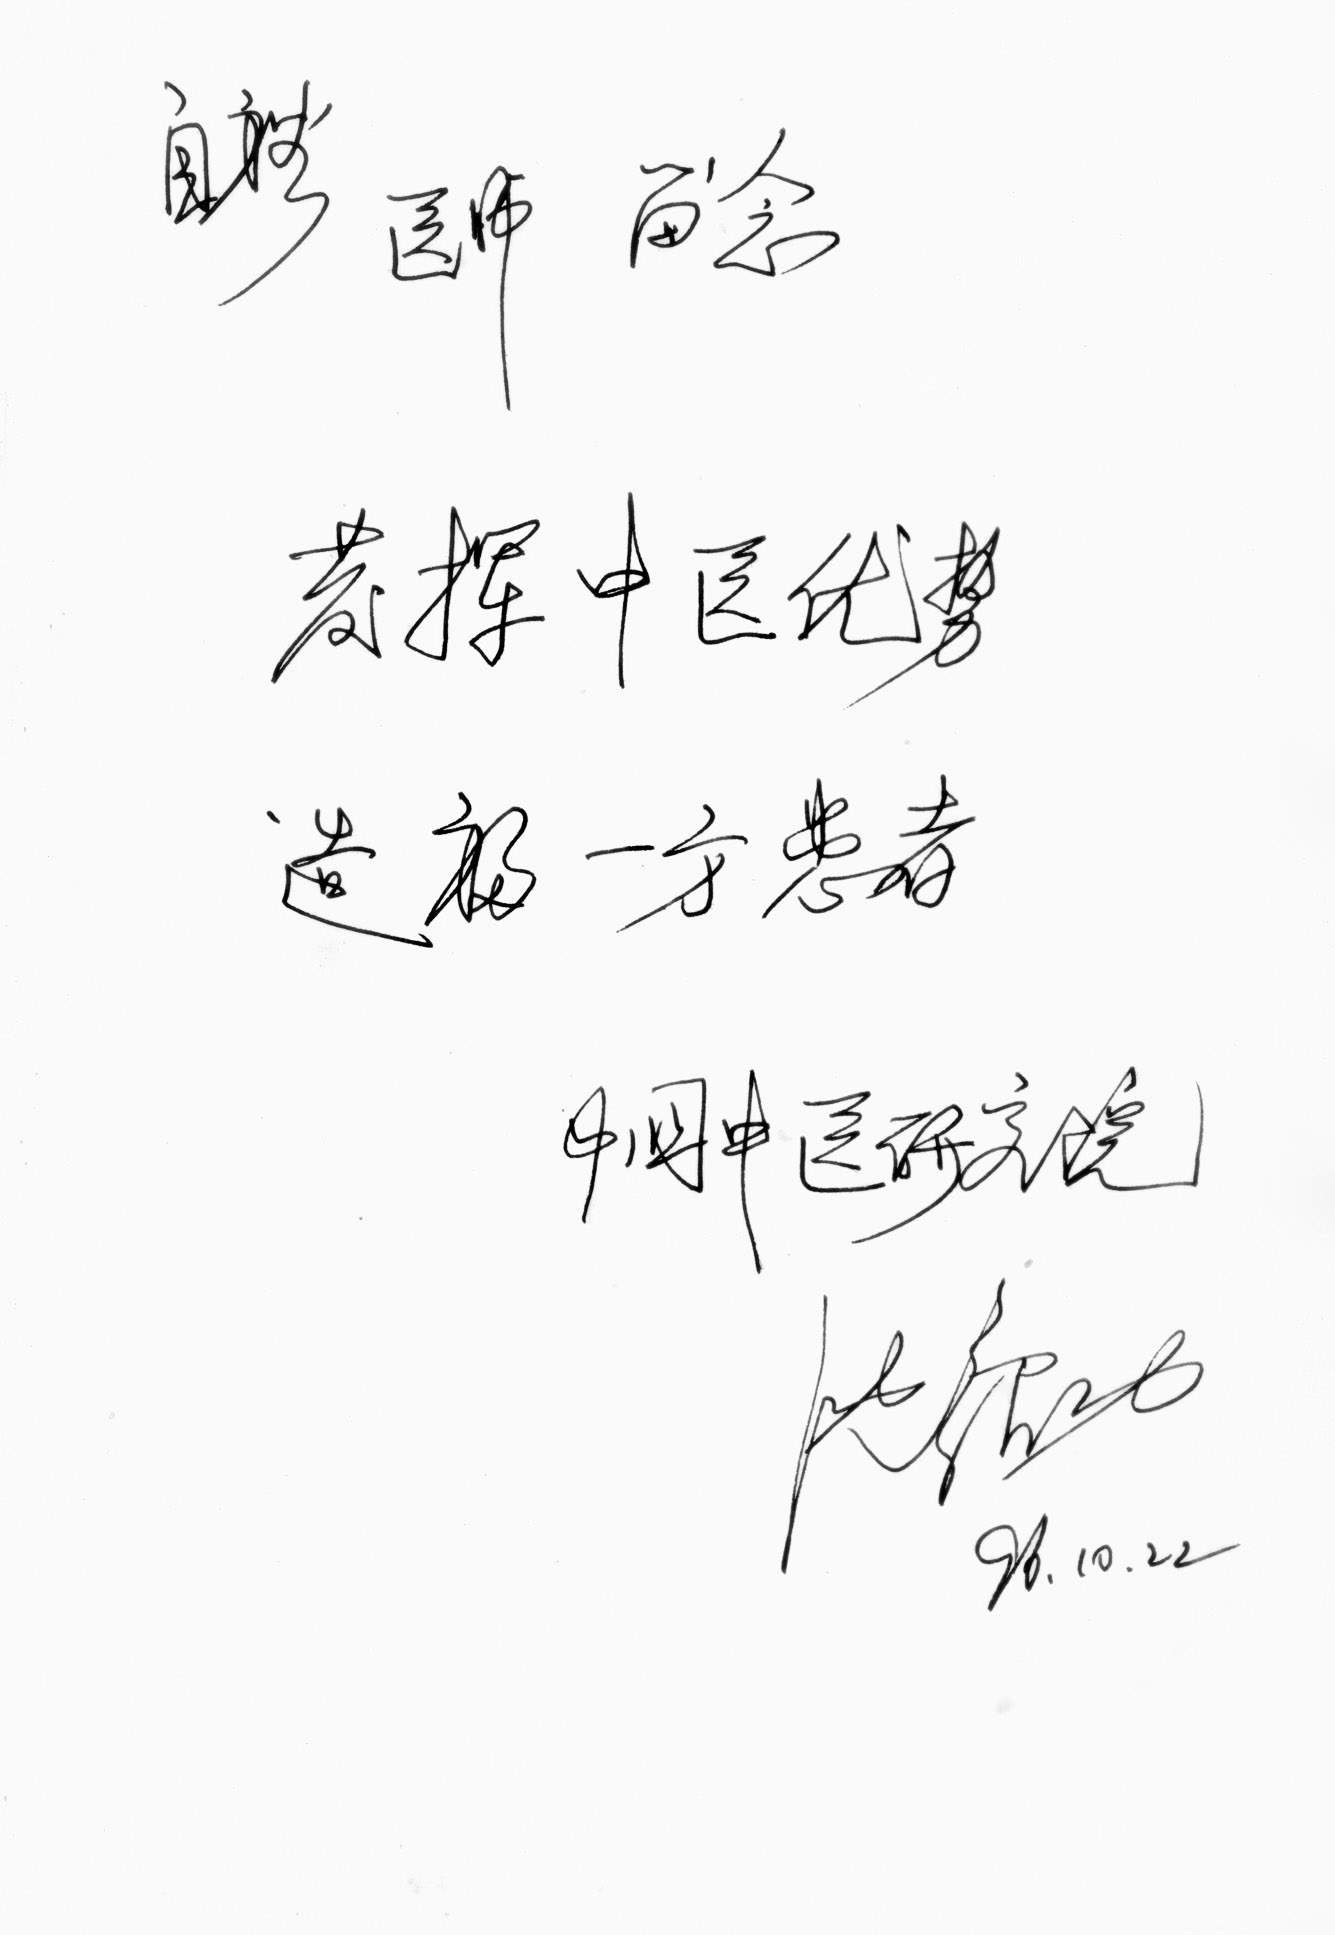 医师 留念
发挥中医优势
造福一方患者
中国中医研究院
96.10.22